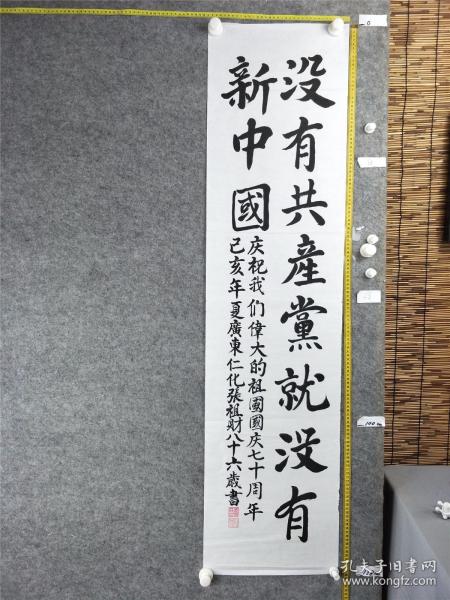 没有共產黨就没有
新中國
庆祝我们偉大的祖國國庆七十周年
己亥年夏廣東仁化張祖財八十六歲書
0
100
孔夫子旧书网
www.kongfz.com